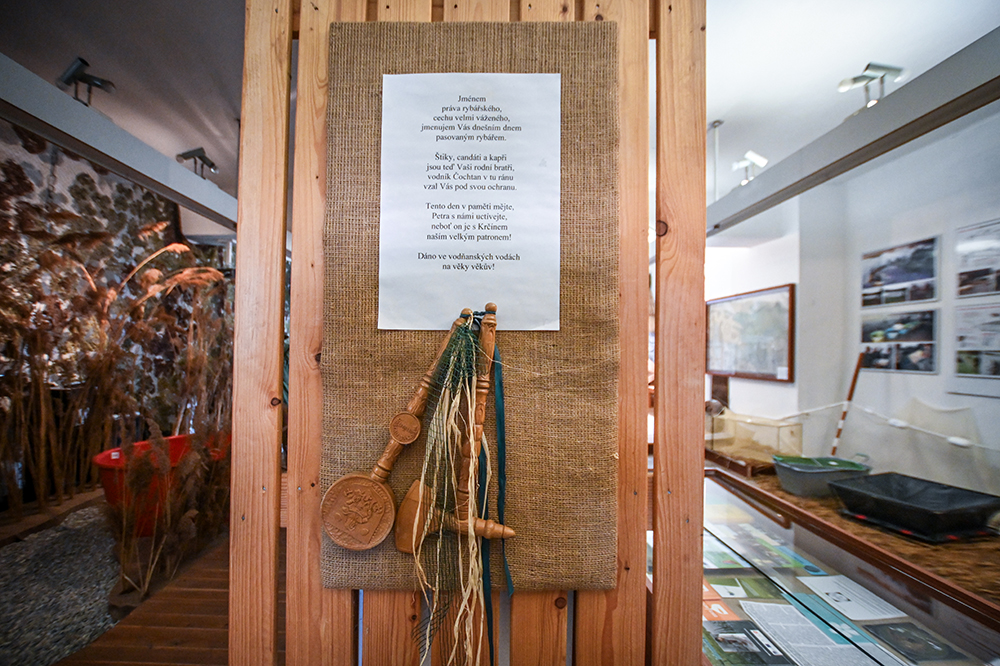 Jménem
práva rybářského,
cechu velmi váženého,
jmenujem Vás dnešním dnem
pasovaným rybářem.
Štiky, candáti a kapři
jsou teď Vaši rodní bratři,
vodník Čochtan v tu ránu
vzal Vás pod svou ochranu.
Tento den v paměti mějte,
Petra s námi uctívejte,
neboť on je s Krčínem
naším velkým patronem!
Dáno ve vodňanských vodách
na věky věkův!